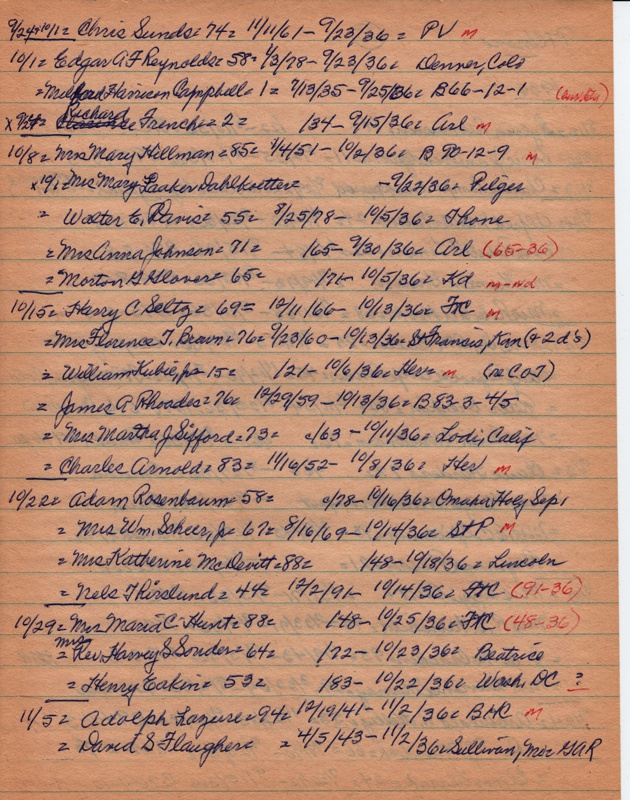 9/24+10/1= Chris Sunds= 74= 11/11/61 - 9/23/36= PV m
10/1= Edgar A F Reynolds= 58= 1/3/78 - 9/23/36= Denver, Colo
= Harrison Campbell= 1= 7/13/35 - 9/25/36= B66-12-1
x 9/24= Richard French= 2= /34 - 9/15/36= Arl m
10/8= Mrs Mary Hillman= 85= 1/4/51 - 10/2/36= B 90-12-9 m
x 10/1 Mrs Mary Laaker Dahlkoetter= - 9/22/36= Pilger
= Walter E. Davis= 55= 8/25/78 - 10/5/36=
= Mrs Anna Johnson= 71= /65 - 9/30/36= Arl (65-36)
= Morton G Glover= 65= /71 - 10/5/36= Kd m-nd
10/15= Harry C Seltz= 69= 12/11/66 - 10/13/36= FtC m
= Mrs Florence T. Brown= 76= 9/23/60 - 10/13/36= St Francis, Kan (+ 2 d's)
= William Kubie, jr= 15= /21 - 10/6/36= Her= m (se C.O.T)
= James A Rhoades= 76= 12/29/59 - 10/13/36= B83-3-4/5
= Mrs Martha J Sifford= 73= c/63 - 10/11/36= Lodi, Calif
= Charles Arnold= 83= 11/16/52 - 10/8/36= Her m
10/22= Adam Rosenbaum= 58= c/78 - 10/16/36= Omaha Holy Sep,
= Mrs Wm. Scheer, Jr= 67= 8/16/69 - 10/14/36= St P m
= Mrs Katherine McDevitt= 88= /48 - 10/18/36= Lincoln
= Nels T Rislund= 44= 12/2/91 - 10/14/36= FtC (91-36)
10/29= Mrs Maria C. Hunt= 88= /48 - 10/25/36= FtC (48-36)
= Mrs Rev Harvey S Souder= 64= /72 - 10/23/36= Beatrice
= Henry Eakin= 53= /83 - 10/22/36= Wash. DC ?
11/5= Adolph Lazure= 94= 12/19/41 - 11/2/36= BHC m
= David S Flaugher= = 4/5/43 - 11/2/36= Sullivan, Mo= GAR